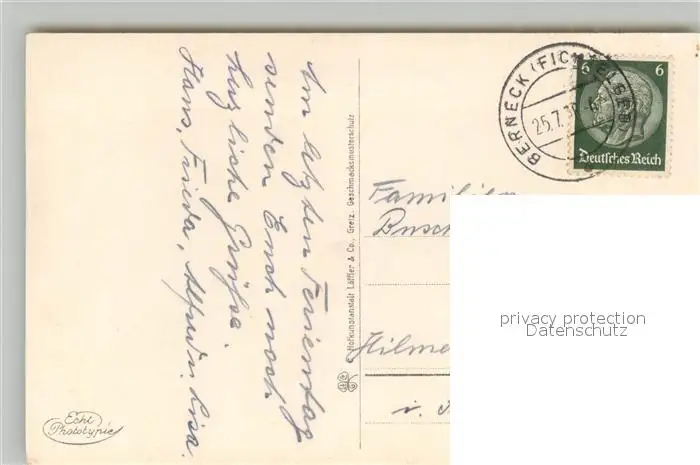 Am letzten Ferientag
senden Euch noch
herzliche Grüße.
Hans, Frieda, Alfred u. Lisa.
Hofkunstanstalt Löffler & Co., Greiz. Geschmacksmusterschutz
Echt
Phototypie
BERNECK (FICHTELGEB)
25.7.3
6 6
Deutsches Reich
Familie
Busc
Hilme
i. 
privacy protection
Datenschutz